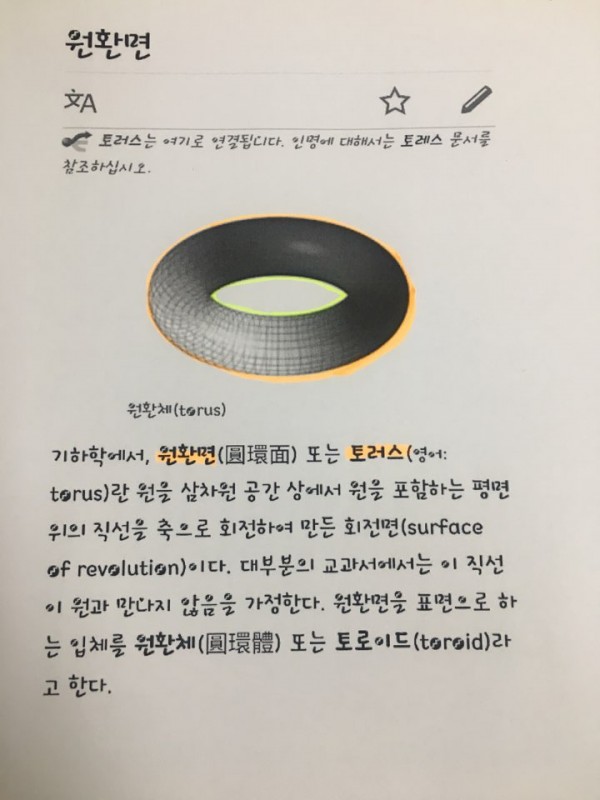 원환면
文A
토러스는 여기로 연결됩니다. 인명에 대해서는 토레스 문서를
참조하십시오.
원환체(torus)
기하학에서, 원환면(圓環面) 또는 토러스(영어:
torus)란 원을 삼차원 공간 상에서 원을 포함하는 평면
위의 직선을 축으로 회전하여 만든 회전면(surface
of revolution)이다. 대부분의 교과서에서는 이 직선
이 원과 만나지 않음을 가정한다. 원환면을 표면으로 하
는 입체를 원환체(圓環體) 또는 토로이드(toroid)라
고 한다.